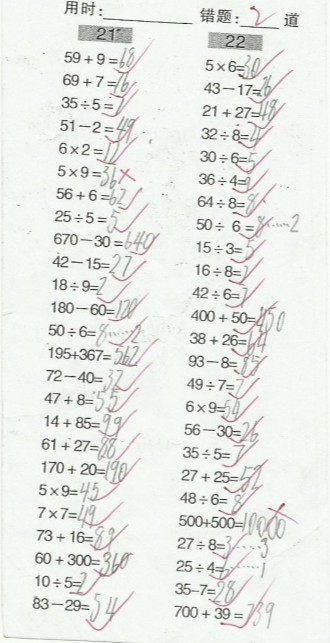 用时: 错题: 2 道
21
59+9=68
69+7=76
35÷5=7
51-2=49
6×2=12
5×9=36
56+6=62
25÷5=5
670-30=640
42-15=27
18÷9=2
180-60=120
50÷6=8……2
195+367=562
72-40=32
47+8=55
14+85=99
61+27=88
170+20=190
5×9=45
7×7=49
73+16=89
60+300=360
10÷5=2
83-29=54
22
5×6=30
43-17=26
21+27=48
32÷8=4
30÷6=5
36÷4=9
64÷8=8
50÷6=8……2
15÷3=5
16÷8=2
42÷6=7
400+50=450
38+26=64
93-8=85
49÷7=7
6×9=54
56-30=26
35÷5=7
27+25=52
48÷6=8
500+500=10000
27÷8=3……3
25÷4=6……1
35-7=28
700+39=739